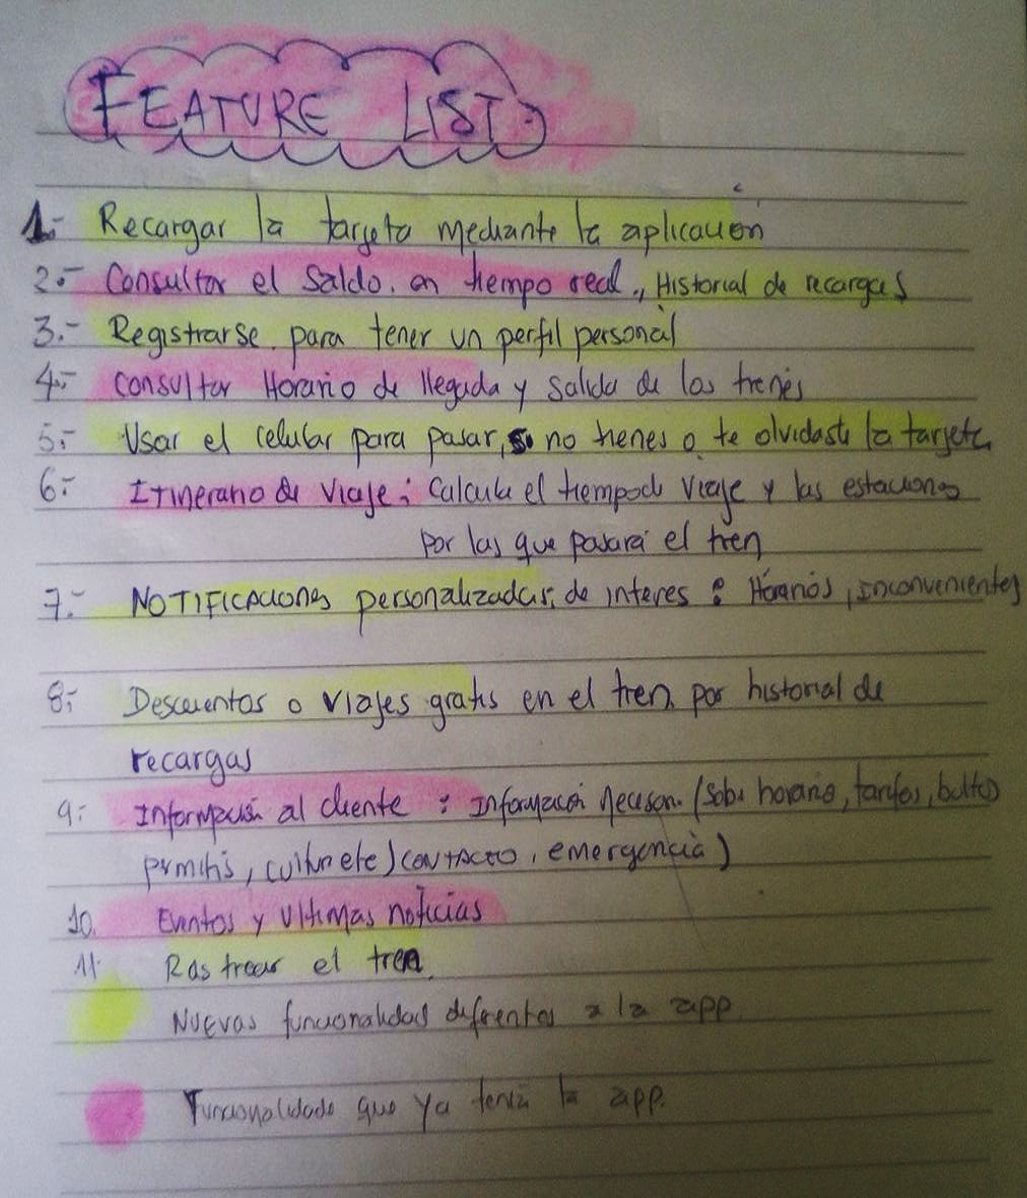 FEATURE LIST:
1.- Recargar la tarjeta mediante la aplicación
2.- Consultar el saldo en tiempo real., Historial de recargas
3.- Registrarse para tener un perfil personal
4.- consultar Horario de llegada y salida de los trenes
5.- Usar el celular para pasar, si no tienes o te olvidaste la tarjeta
6.- Itinerario de viaje: Calcula el tiempo de viaje y las estaciones
por las que pasará el tren
7.- NOTIFICACIONES personalizadas de interes: Horarios, inconvenientes
8.- Descuentos o viajes gratis en el tren por historial de
recargas
9.- Información al cliente: Información (sobre horario, tarifas,
CONTACTO, emergencia)
10. Eventos y Ultimas noticias
11. Rastrear el tren
Nuevas funcionalidad diferentes a la app
Funcionalidade que ya tenia la app.